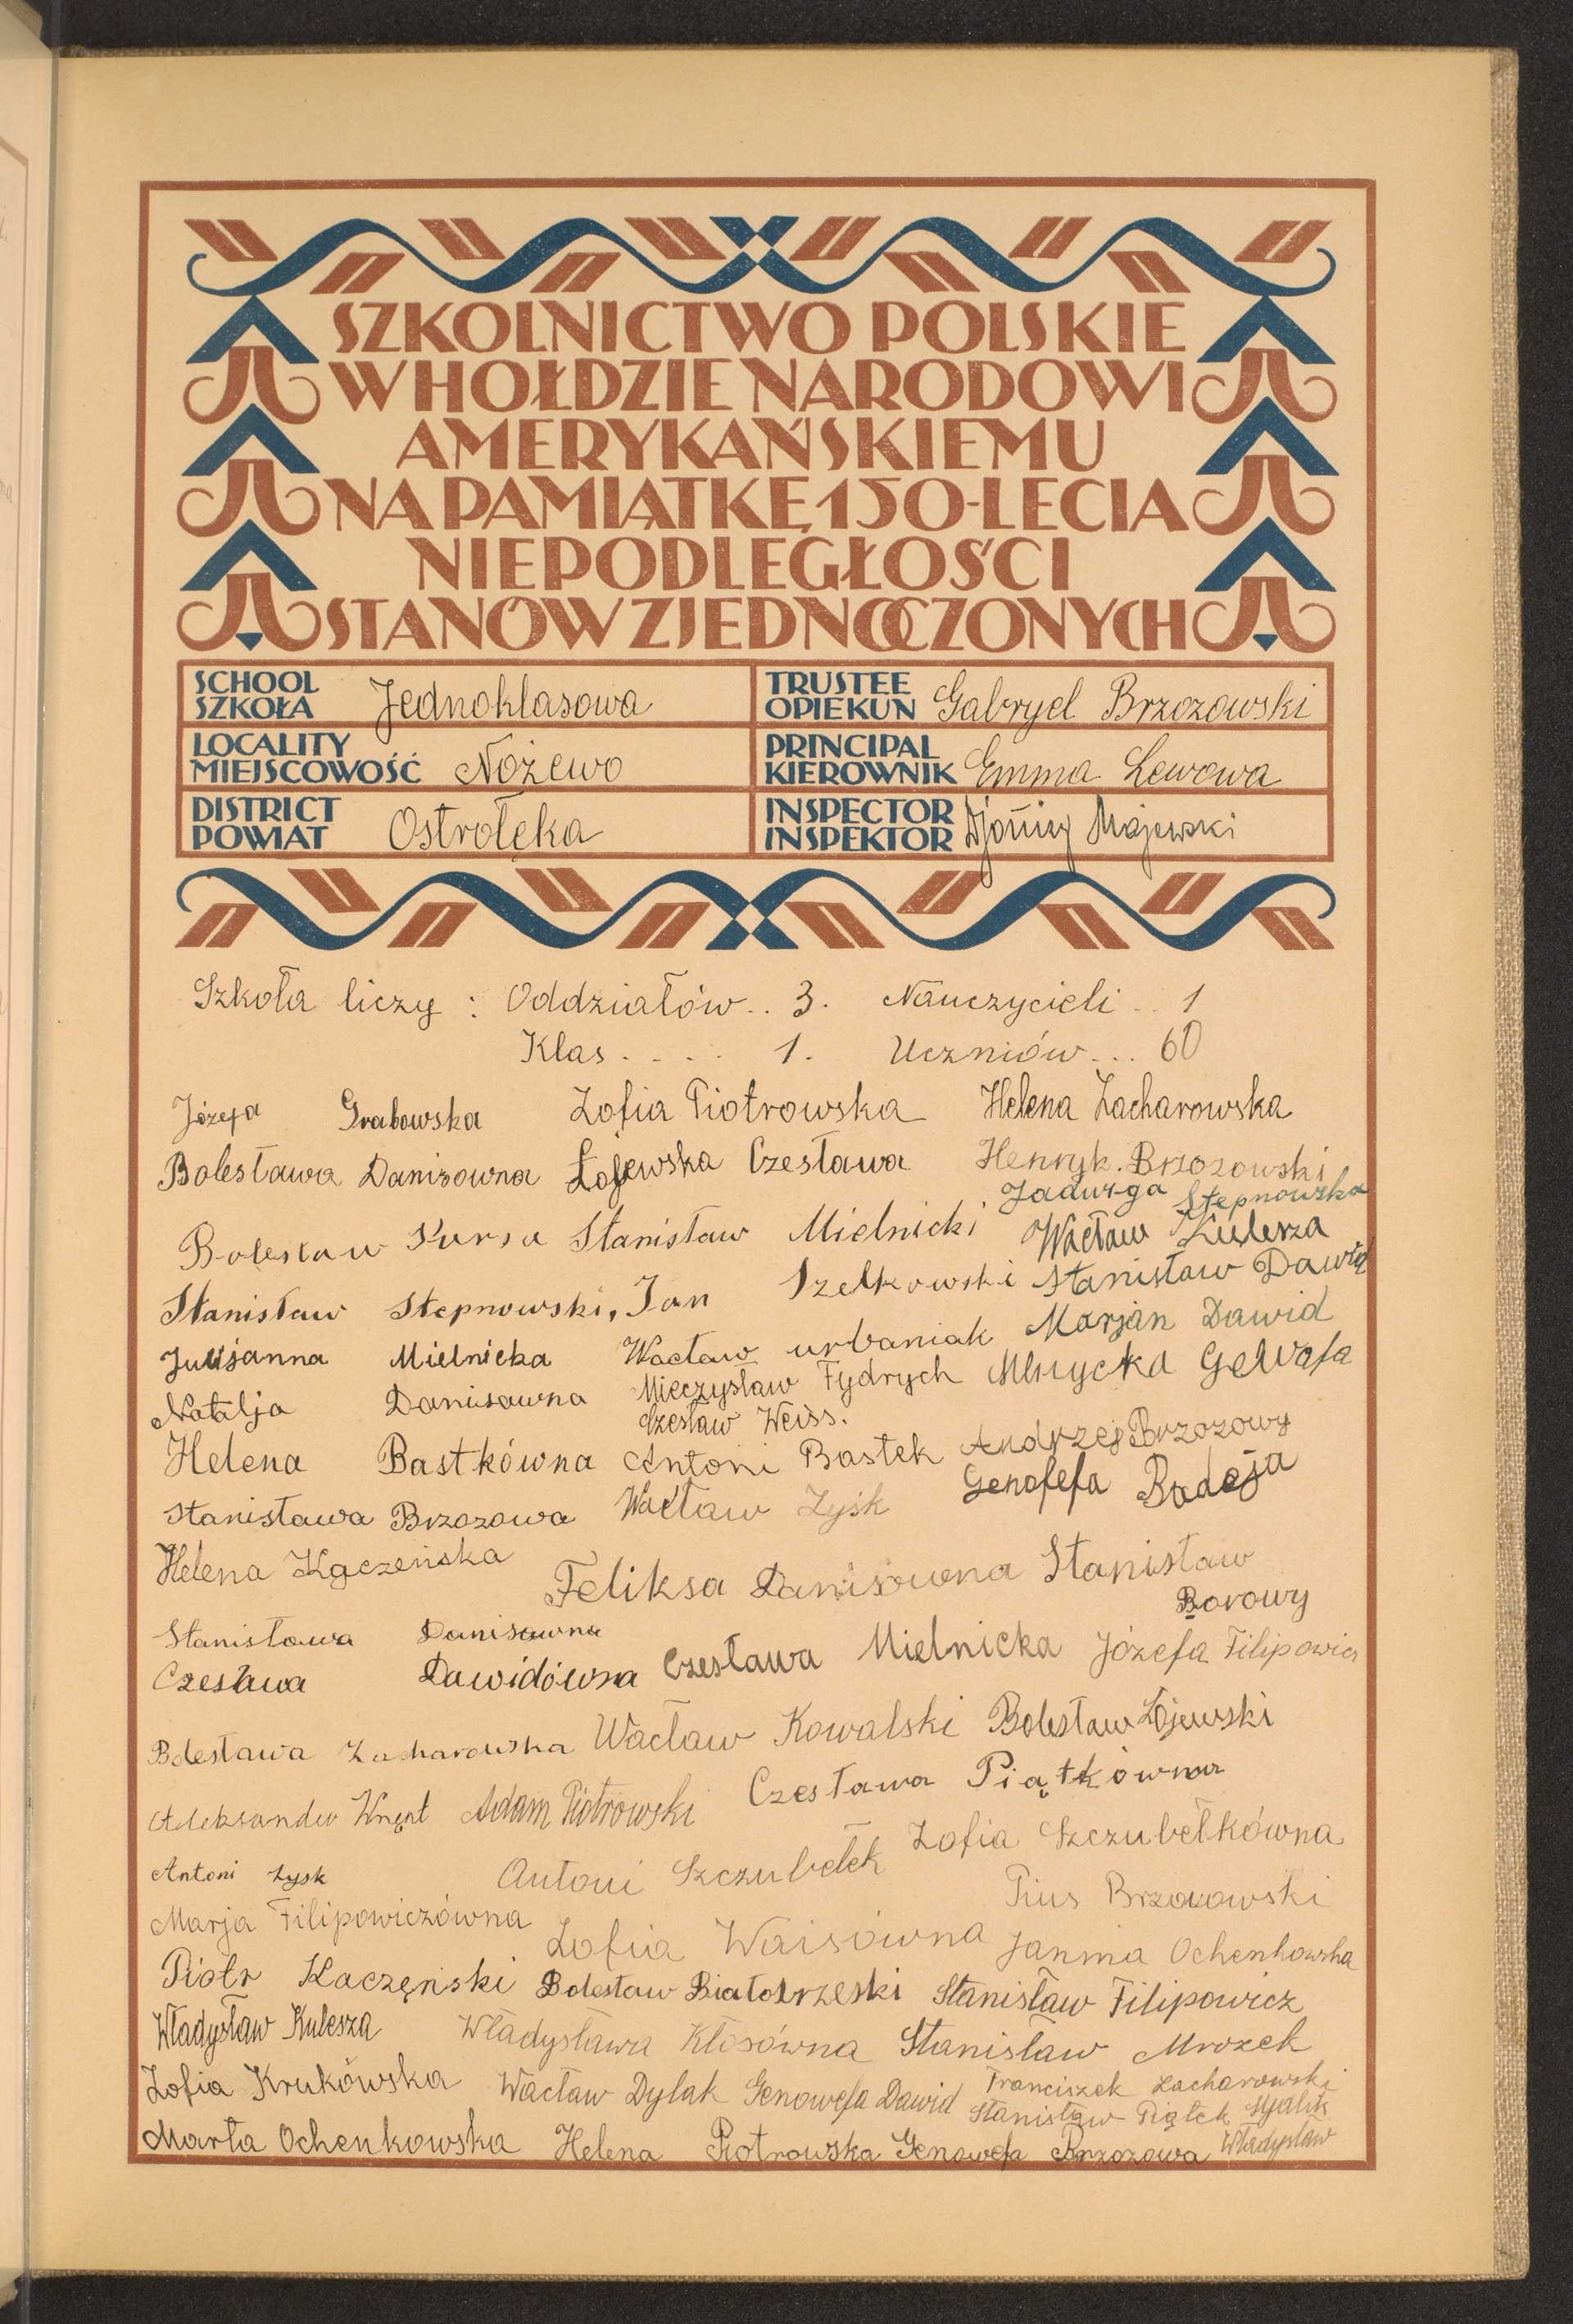 SZKOLNICTWO POLSKIE
W HOŁDZIE NARODOWI
AMERYKAŃSKIEMU
NA PAMIĄTKĘ 150-LECIA
NIEPODLEGŁOŚCI
STANÓW ZJEDNOCZONYCH
SCHOOL
SZKOŁA Jednoklasowa
TRUSTEE
OPIEKUN Gabryel Brzozowski
LOCALITY
MIEJSCOWOŚĆ Nożewo
PRINCIPAL
KIEROWNIK Emma Lewowa
DISTRICT
POWIAT Ostrołęka
INSPECTOR
INSPEKTOR Majewski
Szkoła liczy : Oddziałów.. 3. Nauczycieli .. 1
Klas . . . . 1. Uczniów... 60
Józefa Grabowska Zofia Piotrowska Helena Zacharowska
Bolesława Danisowna Łojewska Czesława Henryk. Brzozowski
Jadwga Stepnowska
Bolesław Kursa Stanisław Mielnicki Wacław Kulerza
Stanisław Stepnowski, Jan Szelkowski Stanisław Dawid
Juljanna Mielnicka Wacław urbaniak Marjan Dawid
Natalja Danisowna Mieczysław Fydrych Mlnycka
Czesław Weiss.
Helena Bastkówna Antoni Bastek Andrzej Brzozowy
Stanisława Brzozowa Wacław Zyśk Genofefa Badeja
Helena Kaczeńska Feliksa Danisówna Stanisław
Borowy
Stanisława Danisowna
Czesława Dawidówna Czesława Mielnicka Józefa Filipowicz
Bolesława Zacharowska Wacław Kowalski Bolesław Łojewski
Aleksander Adam Piotrowski Czesława Piątkówna
Antoni Zysk Antoni Szczubełek Zofia Szczubełkówna
Pius Brzozowski
Marja Filipowiczówna Zofia Waisówna Janina Ochenkowska
Piotr Kaczęński Bolesław Białobrzeski Stanisław Filipowicz
Władysław Kulesza Władysława Kłosówna Stanisław Mrozek
Zofia Krukówska Wacław Dylak Genowefa Dawid Franciszek Zacharowski
Stanisław Piątek
Marta Ochenkowska Helena Piotrowska Genowefa Brzozowa Władysław